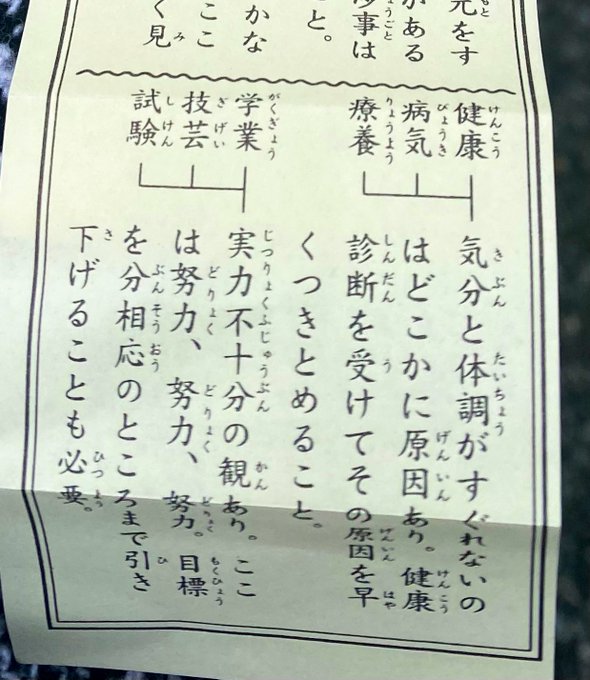 元をす
がある
事は
と。
かな
ここ
く見
健康
病気
療養
気分と体調がすぐれないの
はどこかに原因あり。健康
診断を受けてその原因を早
くつきとめること。
学業
技芸
試験
実力不十分の観あり。ここ
は努力、努力、努力。目標
を分相応のところまで引き
下げることも必要。